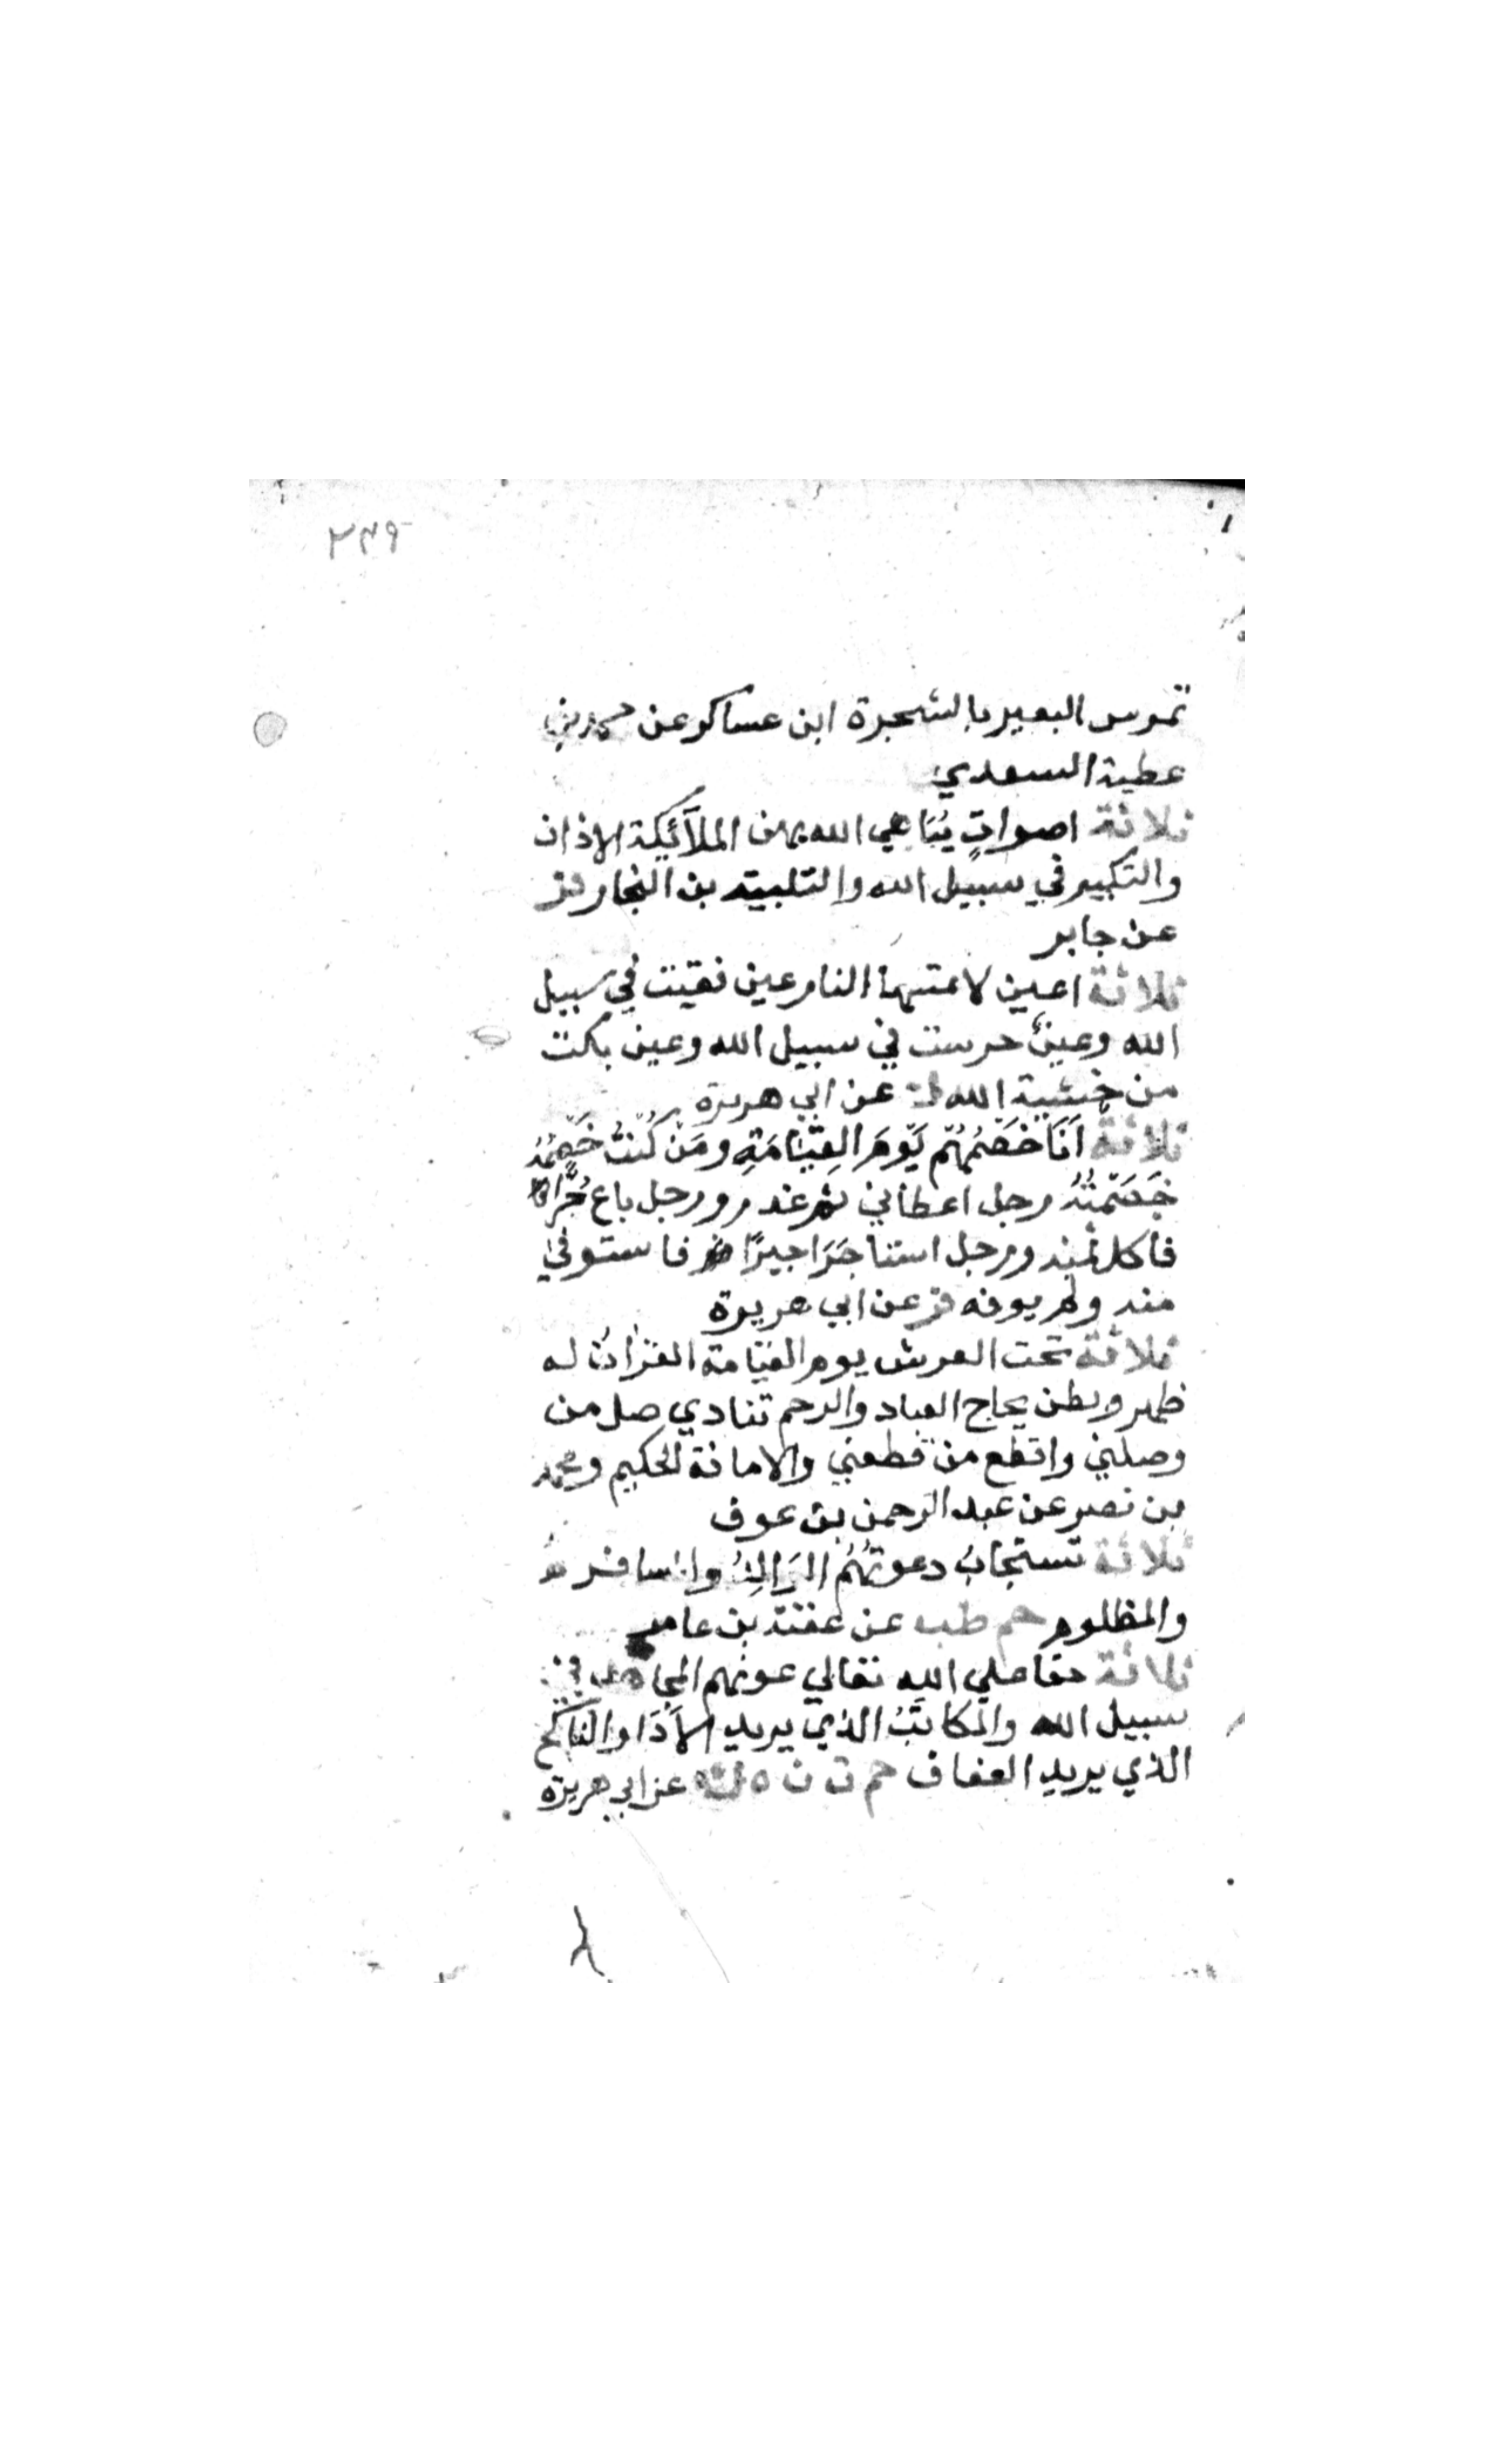 ٢٣٩
تمرس البعير بالشجرة ابن عساكر عن محمد بن
عطية السعدي
ثلاثة اصواتٍ يُبَاهي الله بهن الملآئكة الاذان
والتكبير في سبيل الله والتلبية بن النجار فر
عن جابر
ثلاثة اعين لا تمسها النار عين فقيت في سبيل
الله وعينٌ حرست في سبيل الله وعين بكت
من خشية الله ك عن ابي هريرة
ثلاثة أَنَا خَصْمُهُم يَوْمَ القِيَامَةِ ومَنْ كُنتُ خَصْمُهُ
خَصَمْتُهُ رجل اعطا بي ثم غدر ورجل باع حُرًّا
فاكل ثمنه ورجل استاجَرَ اجيرًا فاستوفي
منه ولم يوفه عن ابي هريرة
ثلاثة تحت العرش يوم القيامة القرآن له
ظهر وبطن يحاج العباد والرحم تنادي صل من
وصلني واقطع من قطعني والامانة الحكيم ومحمد
بن نصر عن عبد الرحمن بن عوف
ثلاثة تستجابُ دعوتُهُم الوَالِدُ والمسافر
والمظلوم حم طب عن عقبة بن عامر
ثلاثة حقا علي الله تعالي عونهم المجاهد في
سبيل الله والمكاتبُ الذي يريد الأَدَا والناكح
الذي يريد العفاف حم ت ن ه ك عن ابي هريرة